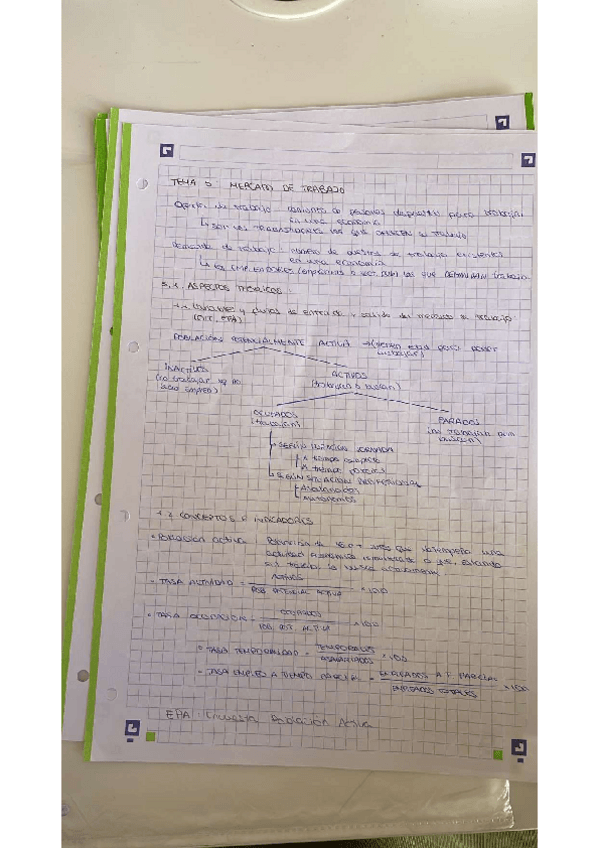 TEMA 5: MERCADO DE TRABAJO
Oferta de trabajo: conjunto de personas disponibles para trabajar
en una economía
↳ son los TRABAJADORES los que OFRECEN su trabajo
demanda de trabajo: número de puestos de trabajo existentes
en una economía
↳ los EMPRESARIOS (empresas o sect. púb) los que DEMANDAN trabajo
5.1 ASPECTOS TEÓRICOS:
y flujos de entrada y salida del mercado de trabajo
(EPA)
POBLACIÓN POTENCIALMENTE ACTIVA → (tienen edad para poder
trabajar)
INACTIVOS
(no trabajan
ACTIVOS
(trabajan o buscan)
OCUPADOS
(trabajan)
PARADOS
(no trabajan pero
buscan)
→ SEGÚN JORNADA
A tiempo completo
A tiempo parcial
→ SEGÚN SITUACIÓN PROFESIONAL
Asalariados
Autónomos
CONCEPTOS E INDICADORES
• Población activa: Población de 16 o + años que desempeña una
actividad económica remunerada o que, estando
sin trabajo, lo busca activamente
• TASA ACTIVIDAD = ACTIVOS
POB. POTENCIAL ACTIVA × 100
• TASA OCUPACIÓN = OCUPADOS
POB. POT. ACTIVA × 100
• TASA TEMPORALIDAD = TEMPORALES
ASALARIADOS × 100
• TASA EMPLEO A TIEMPO PARCIAL = EMPLEADOS A T. PARCIAL
EMPLEADOS TOTALES × 100
EPA: Encuesta Población Activa